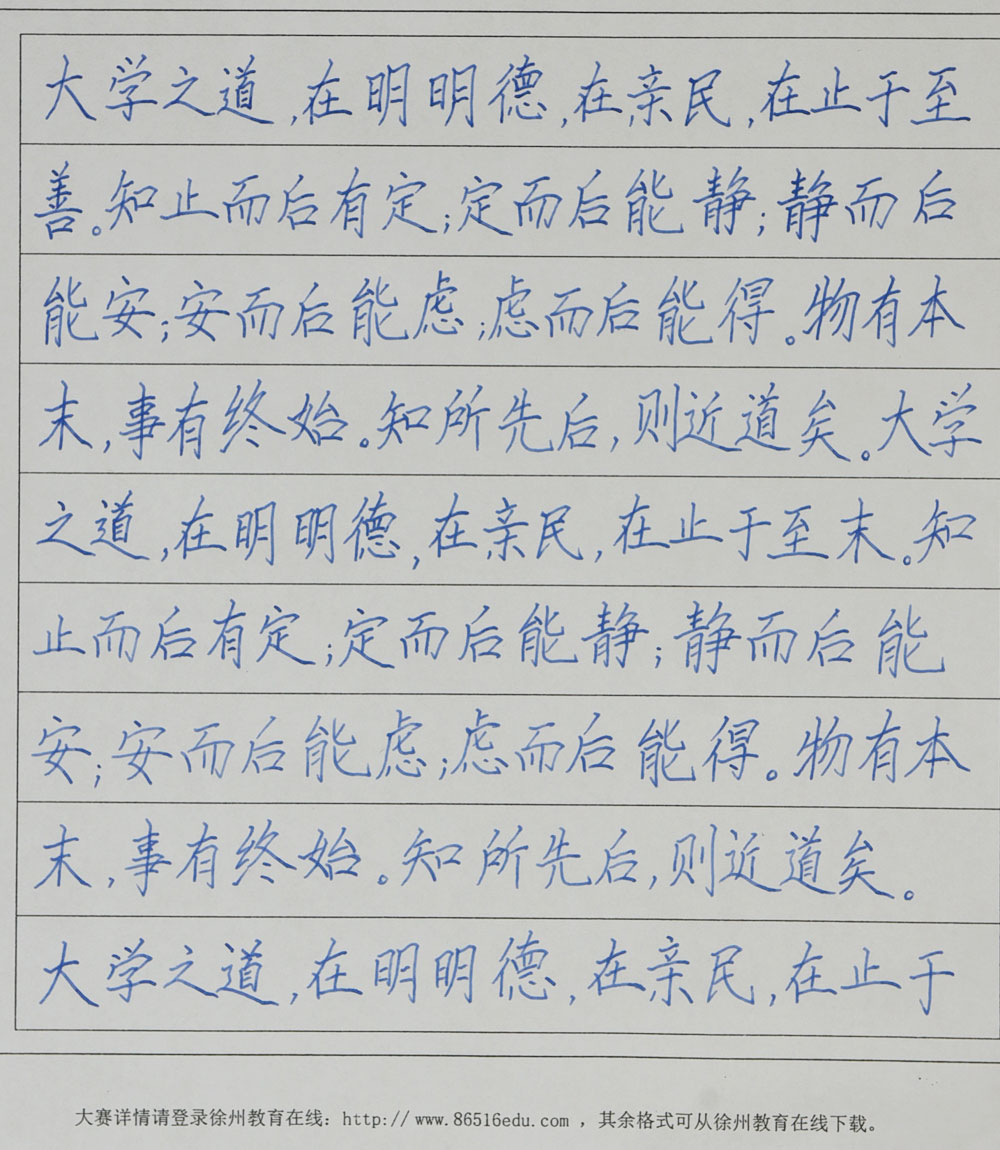 大学之道,在明明德,在亲民,在止于至
善。知止而后有定;定而后能静;静而后
能安;安而后能虑;虑而后能得。物有本
末,事有终始。知所先后,则近道矣。大学
之道,在明明德,在亲民,在止于至末。知
止而后有定;定而后能静;静而后能
安;安而后能虑;虑而后能得。物有本
末,事有终始。知所先后,则近道矣。
大学之道,在明明德,在亲民,在止于
大赛详情请登录徐州教育在线：http://www.86516edu.com，其余格式可从徐州教育在线下载。